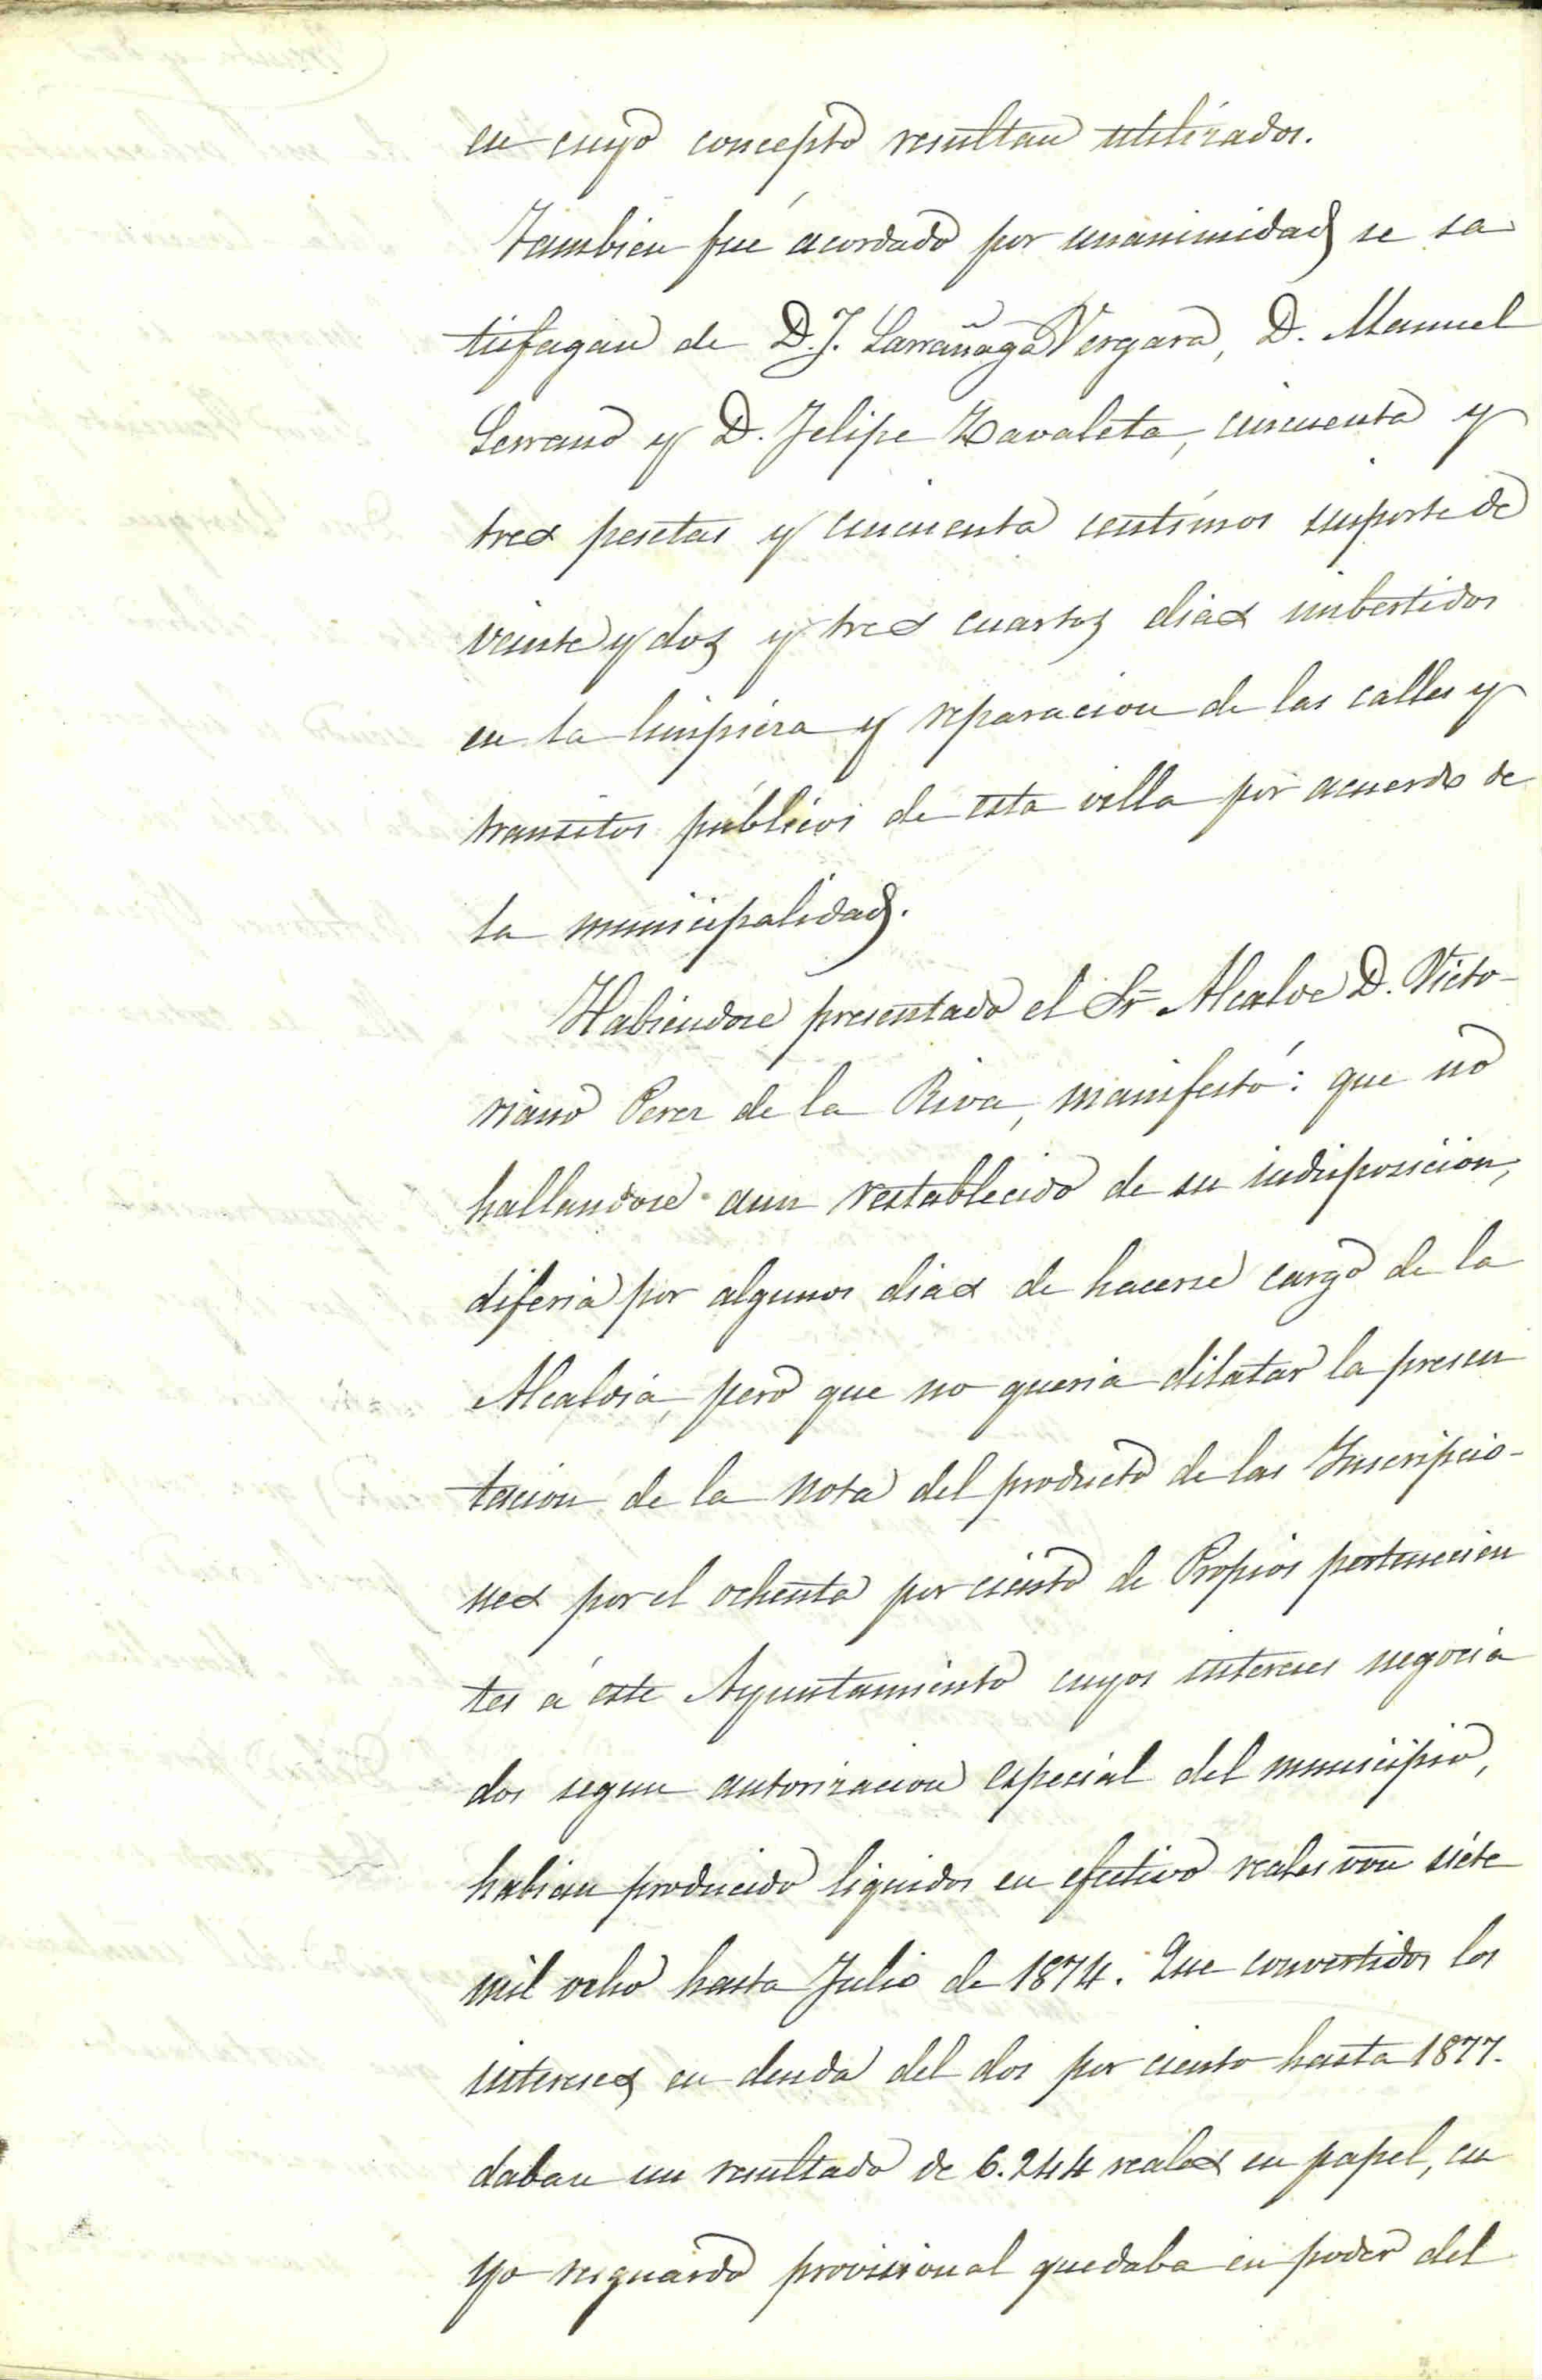 en cuyo concepto resultan utilizados.
Tambien fué acordado por unanimidad se sa
tisfagan de D. J. Larrañaga Vergara, D. Manuel
Serrano y D. Felipe Zavaleta, cincuenta y
tres pesetas y cincuenta centimos importe de
veinte y dos y tres cuartos dias imbertidos
en la limpieza y reparacion de las calles y
transitos públicos de esta villa por acuerdo de
la municipalidad.
Habiendose presentado el Sr Alcalde D. Victo-
riano Perez de la Riva, manifestó: que no
hallandose aun restablecido de su indisposicion,
diferia por algunos dias de hacerse cargo de la
Alcaldia, pero que no queria dilatar la presen
tacion de la nota del producto de las Inscripcio-
nes por el ochenta por ciento de Propios pertenecien
tes á este Ayuntamiento cuyos intereses negocia
dos segun autorizacion especial del municipio,
habian producido liquidos en efectivo reales von siete
mil ocho hasta Julio de 1874. Que convertidos los
intereses en deuda del dos por ciento hasta 1877.
daban un resultado de 6.244 reales en papel, cu
yo resguardo provisional quedaba en poder del